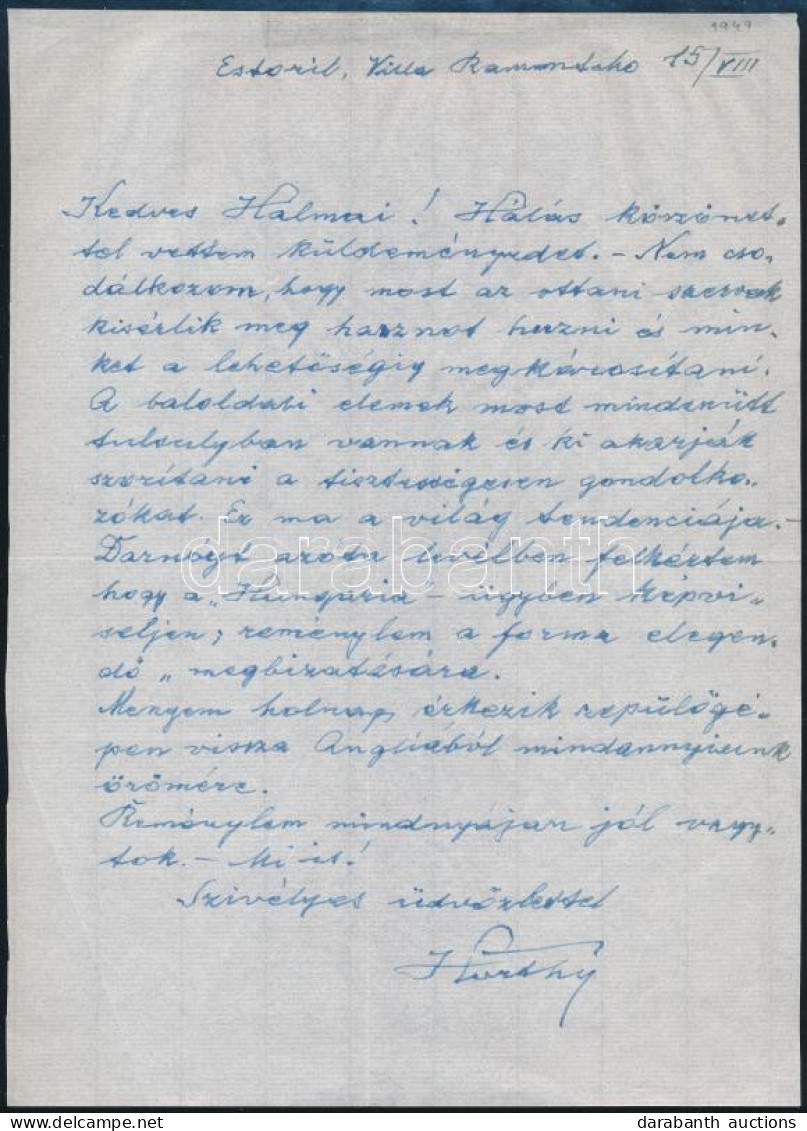 1949
Estoril, Villa Ramontcho 15/VIII
Kedves Hálmai! Hálás köszönet-
tel vettem küldeményedet. – Nem cso-
dálkozom, hogy most az ottani szervek
kisérlik meg hasznot huzni és min-
ket a lehetőségig megkárosítani.
A baloldali elemek most mindenütt
tulsulyban vannak és ki akarják
szorítani a tisztességesen gondolko-
zókat. Ez ma a világ tendenciája. –
Darnóyt azóta levélben felkértem
hogy a „Hungária" – ügyben képvi-
seljen; reménylem a forma elegen-
dő „ megbizatására.
Menyem holnap érkezik repülőgé-
pen vissza Angliából mindannyiunk
örömére.
Reménylem mindnyájan jól vagy-
tok. – Mi is!
Szivélyes üdvözlettel
Horthy
darabanth
www.delcampe.net
darabanth auctions